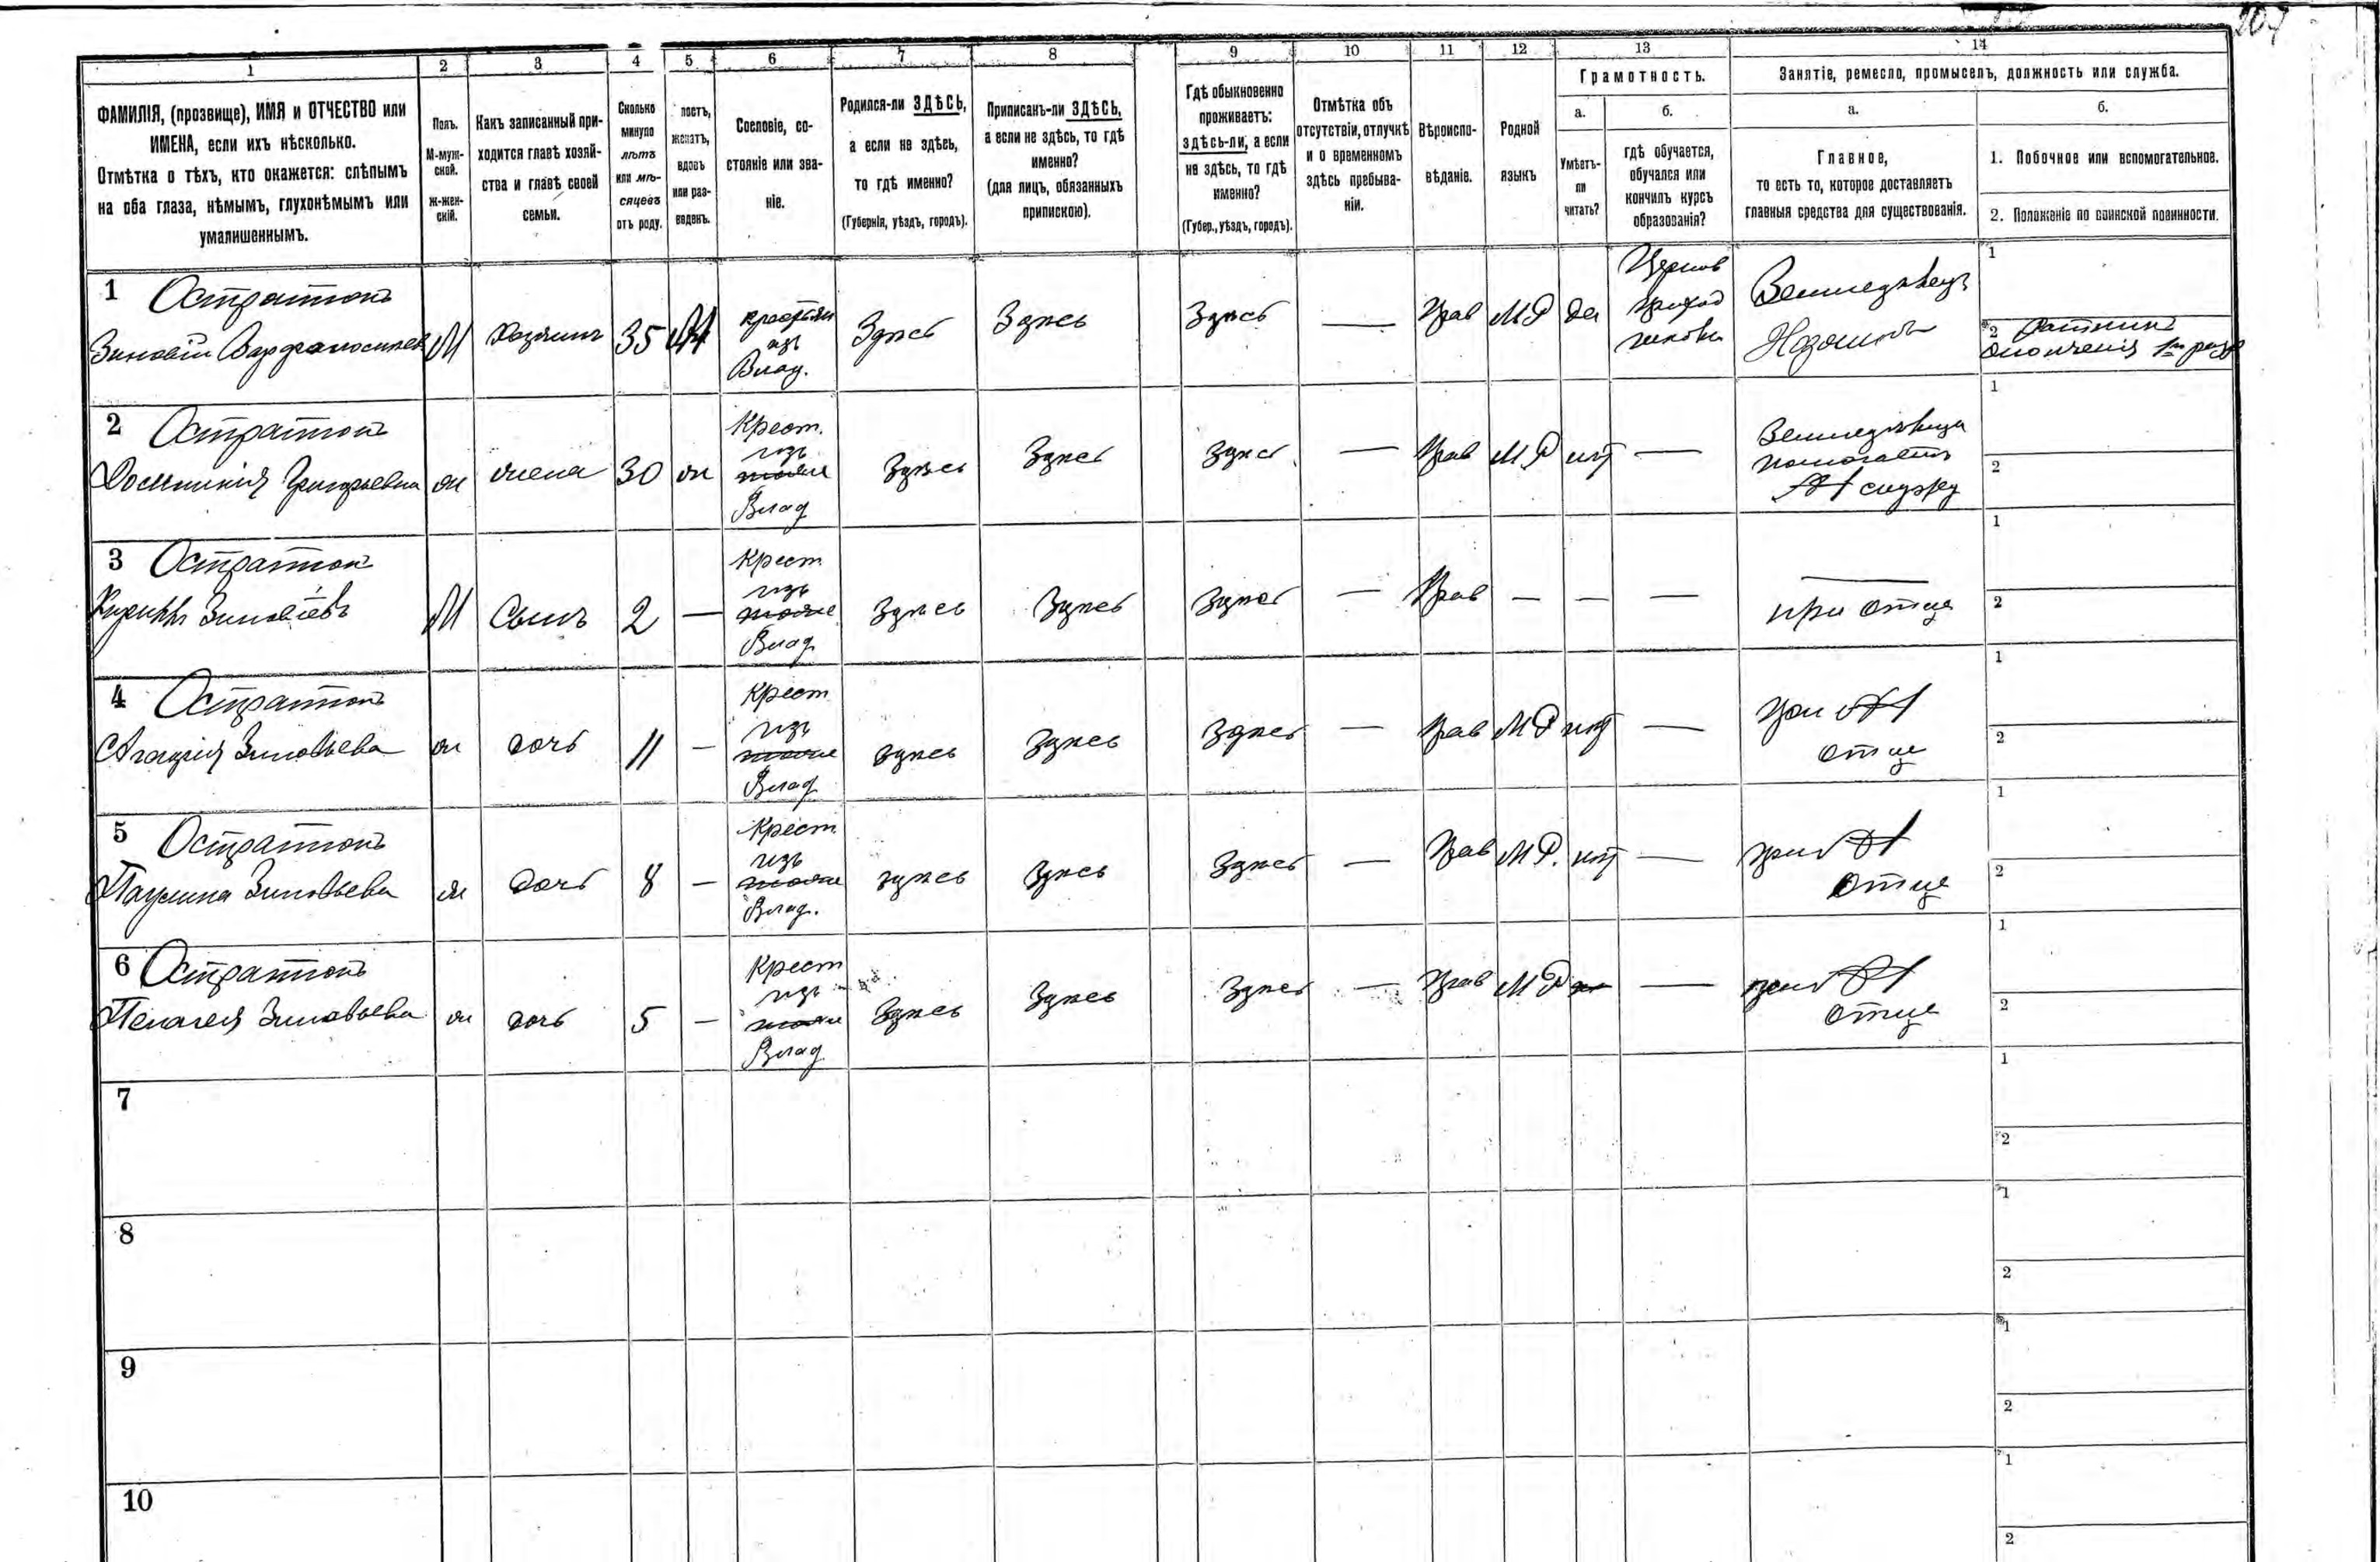 1 2 3 4 5 6 7 8 9 10 11 12 13 14
ФАМИЛІЯ, (прозвище), ИМЯ и ОТЧЕСТВО или
ИМЕНА, если ихъ нѣсколько.
Отмѣтка о тѣхъ, кто окажется: слѣпымъ
на оба глаза, нѣмымъ, глухонѣмымъ или
умалишеннымъ.
Полъ.
М-муж-
ской.
ж-жен-
скій.
Какъ записанный при-
ходится главѣ хозяй-
ства и главѣ своей
семьи.
Сколько
минуло
лѣтъ
или мѣ-
сяцевъ
отъ роду.
лостъ,
женатъ,
вдовъ
или раз-
веденъ.
Сословіе, со-
стояніе или зва-
ніе.
Родился-ли ЗДѢСЬ,
а если не здѣсь,
то гдѣ именно?
(Губернія, уѣздъ, городъ).
Приписанъ-ли ЗДѢСЬ,
а если не здѣсь, то гдѣ
именно?
(для лицъ, обязанныхъ
припискою).
Гдѣ обыкновенно
проживаетъ:
здѣсь-ли, а если
не здѣсь, то гдѣ
именно?
(Губер., уѣздъ, городъ).
Отмѣтка объ
отсутствіи, отлучкѣ
и о временномъ
здѣсь пребыва-
ніи.
Вѣроиспо-
вѣданіе.
Родной
языкъ
Грамотность.
а.
Умѣетъ-
ли
читать?
б.
гдѣ обучается,
обучался или
кончилъ курсъ
образованія?
Занятіе, ремесло, промыселъ, должность или служба.
а.
Главное,
то есть то, которое доставляетъ
главныя средства для существованія.
б.
1. Побочное или вспомогательное.
2. Положеніе по воинской повинности.
1 Остратюкъ
Зиновій
М Хозяинъ 35
изъ
Влад.
Здѣсь Здѣсь Здѣсь — Прав М Р да
Церков
приход
Земледѣлецъ
1
2 Ратникъ
ополченія 1го разр
2 Остратюкъ
Григорьевна
ж жена 30 ж
Крест.
изъ
Влад
Здѣсь Здѣсь Здѣсь — Прав М Р нѣт —
помогаетъ
мужу
1
2
3 Остратюкъ
Зиновіевъ
М Сынъ 2 —
Крест
изъ
Влад
Здѣсь Здѣсь Здѣсь — Прав — — —
при отце
1
2
4 Остратюкъ
Зиновьева
ж дочь 11 —
Крест
изъ
Влад
здѣсь Здѣсь Здѣсь — Прав М Р нѣт —
при
отце
1
2
5 Остратюкъ
Зиновьева
ж дочь 8 —
Крест
изъ
Влад.
здѣсь Здѣсь Здѣсь — Прав М Р. нѣт —
при
отце
1
2
6 Остратюкъ
Пелагея Зиновьева
ж дочь 5 —
Крест
изъ
Влад
Здѣсь Здѣсь Здѣсь — Прав М Р —
при
отце
1
2
7
1
2
8
1
2
9
1
2
10
1
2